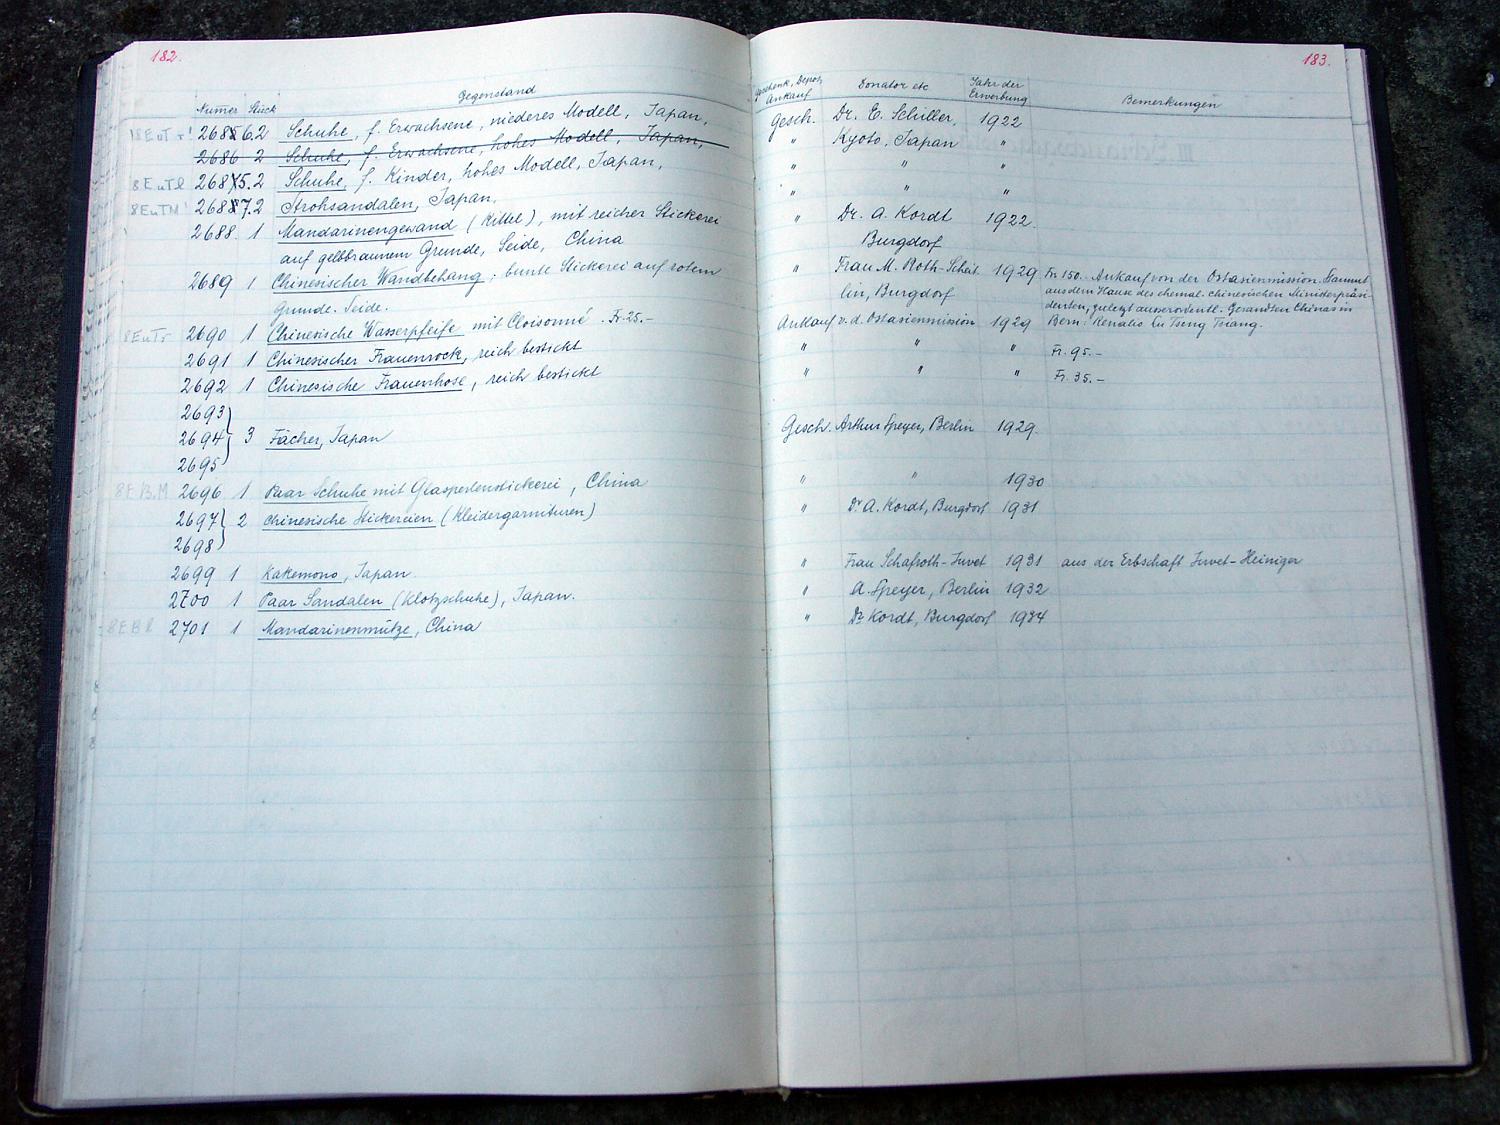 182.
Numer Stück Gegenstand
2686.2 Schuhe, f. Erwachsene, niederes Modell, Japan,
2686 2 Schuhe, f. Erwachsene, hohes Modell, Japan,
2685.2 Schuhe, f. Kinder, hohes Modell, Japan,
2687.2 Strohsandalen, Japan.
2688. 1 Mandarinengewand (Kittel), mit reicher Stickerei
auf gelbbraunem Grunde, Seide, China
2689 1 Chinesischer Wandbehang; bunte Stickerei auf rotem
Grunde. Seide.
8EuTr 2690 1 Chinesische Wasserpfeife mit Cloisonné. Fr. 25.-
2691 1 Chinesischer Frauenrock, reich bestickt
2692 1 Chinesische Frauenhose, reich bestickt
2693
2694 3 Fächer, Japan
2695
8EB.M 2696 1 Paar Schuhe mit Glasperlenstickerei, China
2697 2 Chinesische Stickereien (Kleidergarnituren)
2698
2699 1 Kakemono, Japan.
2700 1 Paar Sandalen (Klotzschuhe), Japan.
2701 1 Mandarinenmütze, China
183.
Geschenk, Depot, Ankauf Donator etc Jahr der Erwerbung Bemerkungen
Gesch. Dr. E. Schiller, 1922
" Kyoto, Japan "
" " "
" " "
" Dr. A. Kordt 1922.
Burgdorf
" Frau M. Roth-Scheit 1929 Fr. 150.- Ankauf von der Ostasienmission. Stammt
lin, Burgdorf aus dem Hause des ehemal. chinesischen Ministerpräsi-
denten, zuletzt ausserordentl. Gesandten Chinas in
Ankauf v. d. Ostasienmission 1929 Bern: Tseng Tsiang.
" " " Fr. 95.-
" " " Fr. 35.-
Gesch. Arthur Speyer, Berlin 1929.
" " 1930
" Dr. A. Kordt, Burgdorf 1931
" Frau Schafroth-Juvet 1931 aus der Erbschaft Juvet-Heiniger
" A. Speyer, Berlin 1932
" Dr. Kordt, Burgdorf 1934